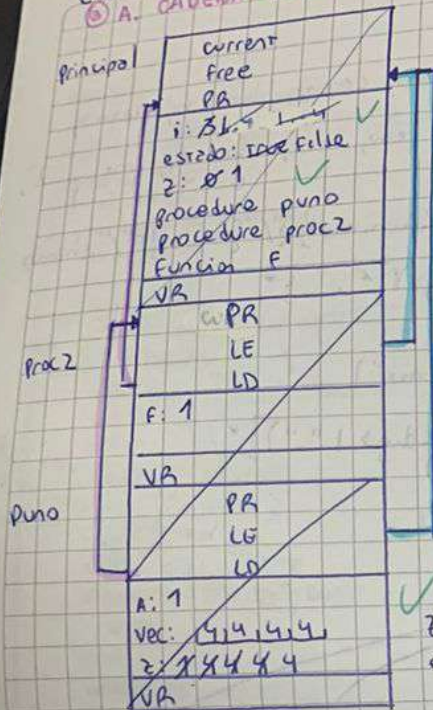 ③ A. CADENA
Principal
current
free
PR
i:
estado: True False
z: 0 1
procedure puno
procedure proc2
funcion F
VR
Proc2
PR
LE
LD
F: 1
VR
Puno
PR
LE
LD
A: 1
Vec: 4, 4, 4, 4
z: 4 4 4
VR